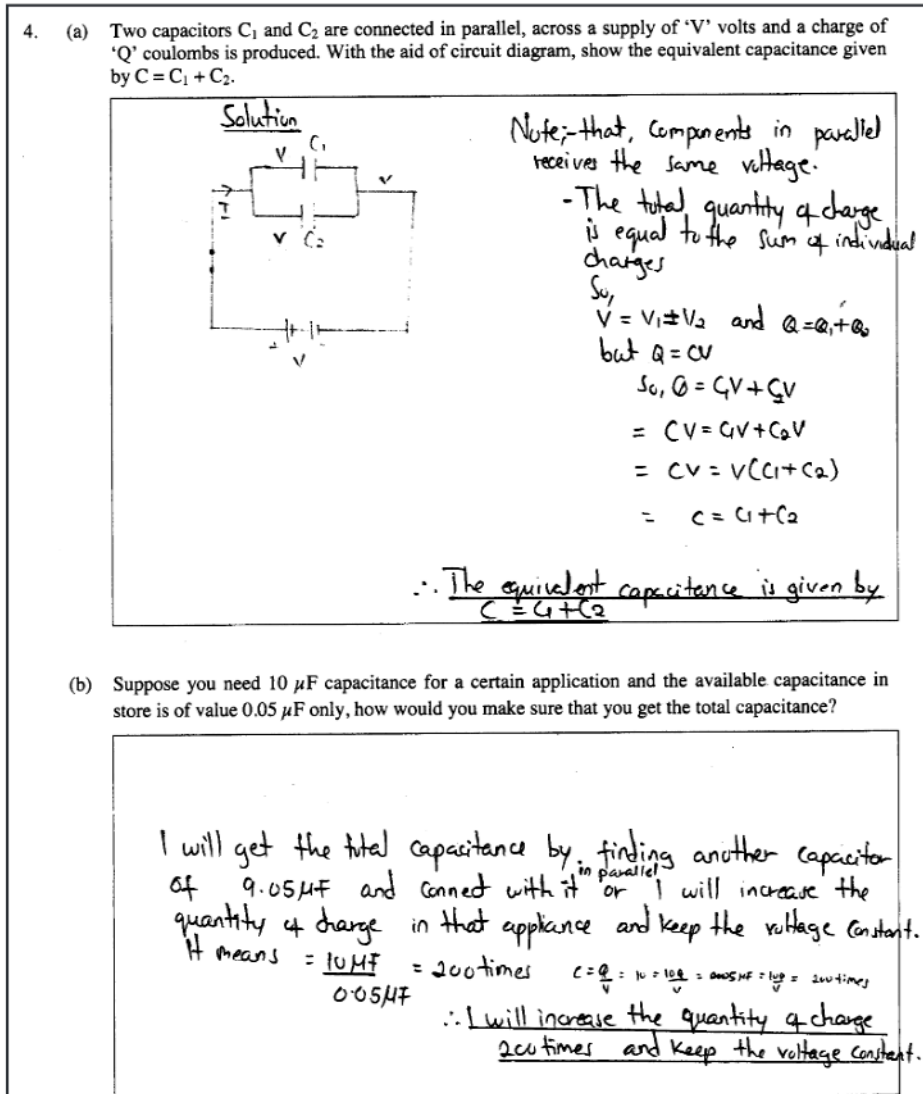 4. (a) Two capacitors C₁ and C₂ are connected in parallel, across a supply of ‘V’ volts and a charge of
‘Q’ coulombs is produced. With the aid of circuit diagram, show the equivalent capacitance given
by C = C₁ + C₂.
Solution
V C₁
I V
V C₂
+ -
V
Note;- that, Components in parallel
receives the same voltage.
- The total quantity of charge
is equal to the sum of individual
charges
So,
V = V₁ = V₂ and Q = Q₁ + Q₂
but Q = CV
So, Q = C₁V + C₂V
= CV = C₁V + C₂V
= CV = V(C₁ + C₂)
= C = C₁ + C₂
∴ The equivalent capacitance is given by
C = C₁ + C₂
(b) Suppose you need 10 μF capacitance for a certain application and the available capacitance in
store is of value 0.05 μF only, how would you make sure that you get the total capacitance?
I will get the total capacitance by, finding another capacitor
of 9.05μF and connect with it in parallel or I will increase the
quantity of charge in that appliance and keep the voltage constant.
It means = 10μF / 0.05μF = 200 times C = Q/V = 10 = 10Q/V = 200 times
∴ I will increase the quantity of charge
200 times and keep the voltage constant.